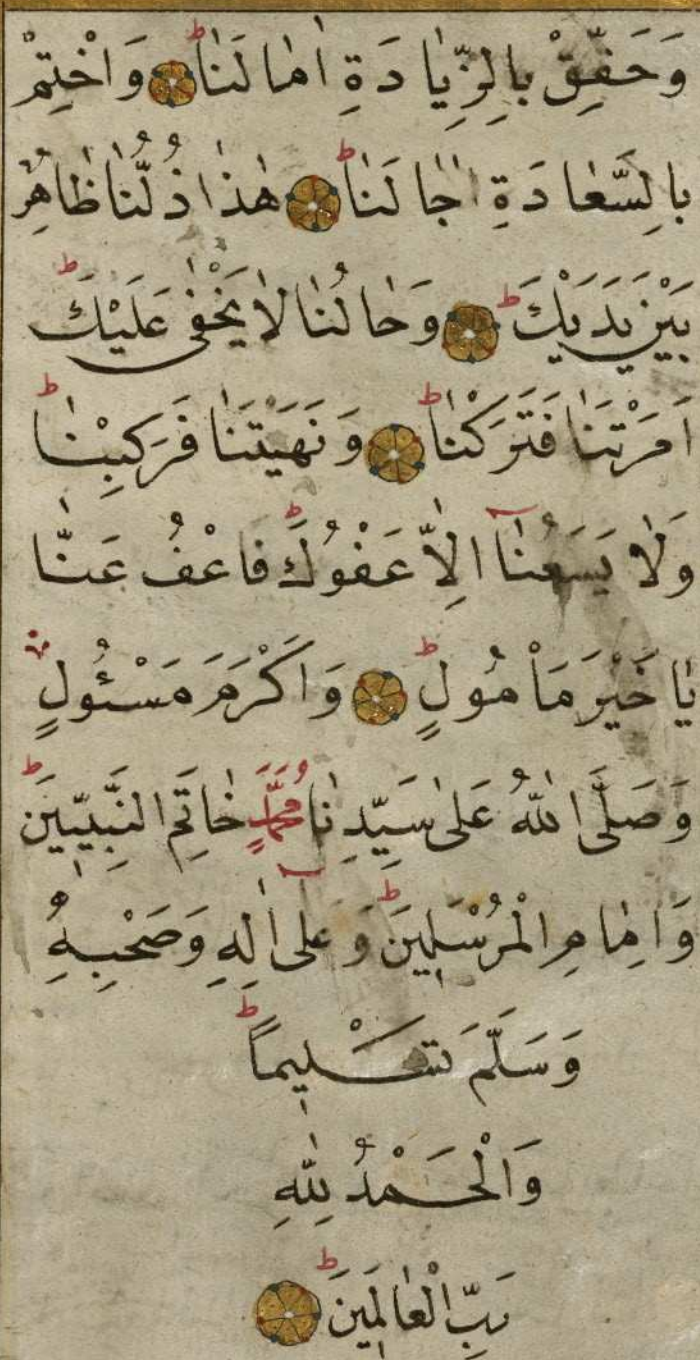 وَحَقِّقْ بِالزِّيَادَةِ اٰمَالَنَا ۞ وَاخْتِمْ
بِالسَّعَادَةِ اٰجَالَنَا ۞ هٰذَا ذُلُّنَا ظَاهِرٌ
بَيْنَ يَدَيْكَ ۞ وَحَالُنَا لَا يَخْفٰى عَلَيْكَ
اَمَرْتَنَا فَتَرَكْنَا ۞ وَنَهَيْتَنَا فَرَكِبْنَا
وَلَا يَسَعُنَا اِلَّا عَفْوُكَ فَاعْفُ عَنَّا
يَا خَيْرَ مَأْمُولٍ ۞ وَاَكْرَمَ مَسْئُولٍ
وَصَلَّى اللهُ عَلٰى سَيِّدِنَا مُحَمَّدٍ خَاتَمِ النَّبِيِّينَ
وَاِمَامِ الْمُرْسَلِينَ وَعَلٰى اٰلِهِ وَصَحْبِهِ
وَسَلَّمَ تَسْلِيمًا
وَالْحَمْدُ لِلّٰهِ
رَبِّ الْعَالَمِينَ ۞